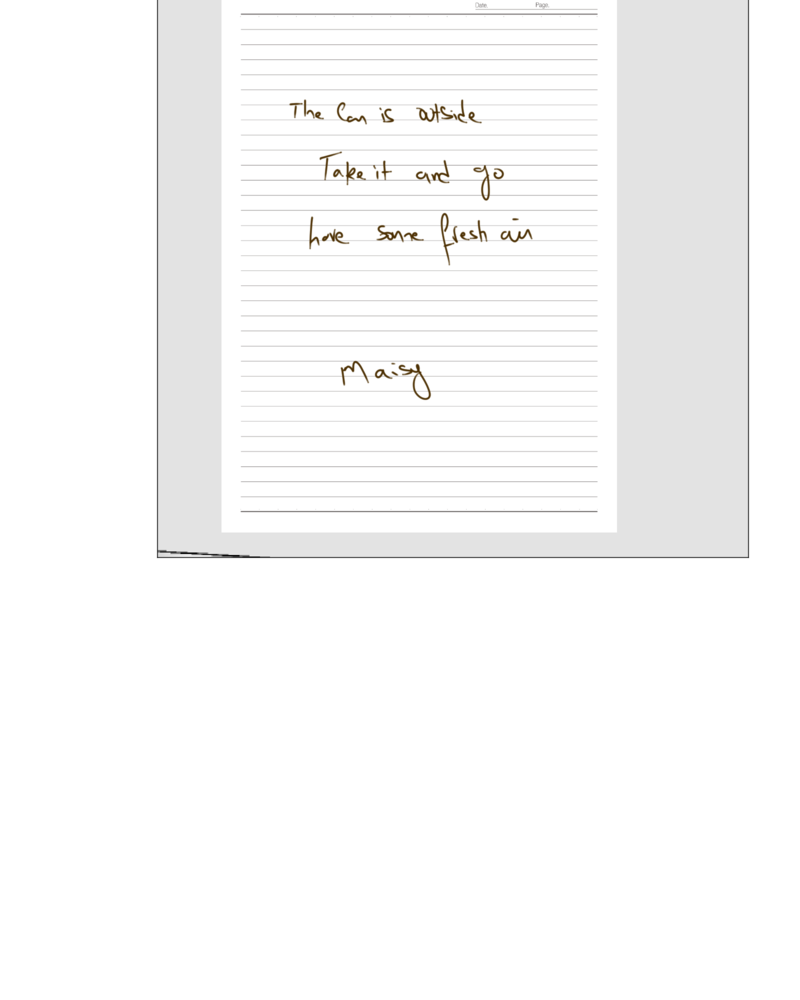 Date. Page.
The Car is outside
Take it and go
have some fresh air
Maisy